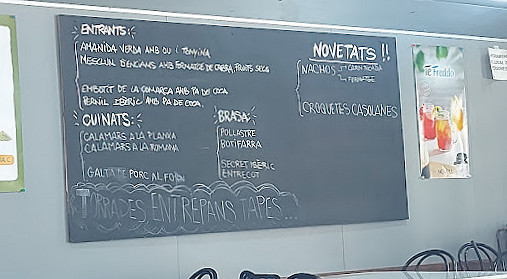 ENTRANTS:
AMANIDA VERDA AMB OU I TONYINA
MESCLUM D'ENCIAMS AMB FORMATGE DE CABRA, FRUITS SECS
EMBOTIT DE LA COMARCA AMB PA DE COCA
PERNIL IBÈRIC AMB PA DE COCA
CUINATS:
CALAMARS A LA PLANXA
CALAMARS A LA ROMANA
GALTA DE PORC AL FORN
BRASA:
POLLASTRE
BOTIFARRA
SECRET IBÈRIC
ENTRECOT
TORRADES, ENTREPANS, TAPES...
NOVETATS !!
NACHOS
FORMATGE
CROQUETES CASOLANES
Té Freddo